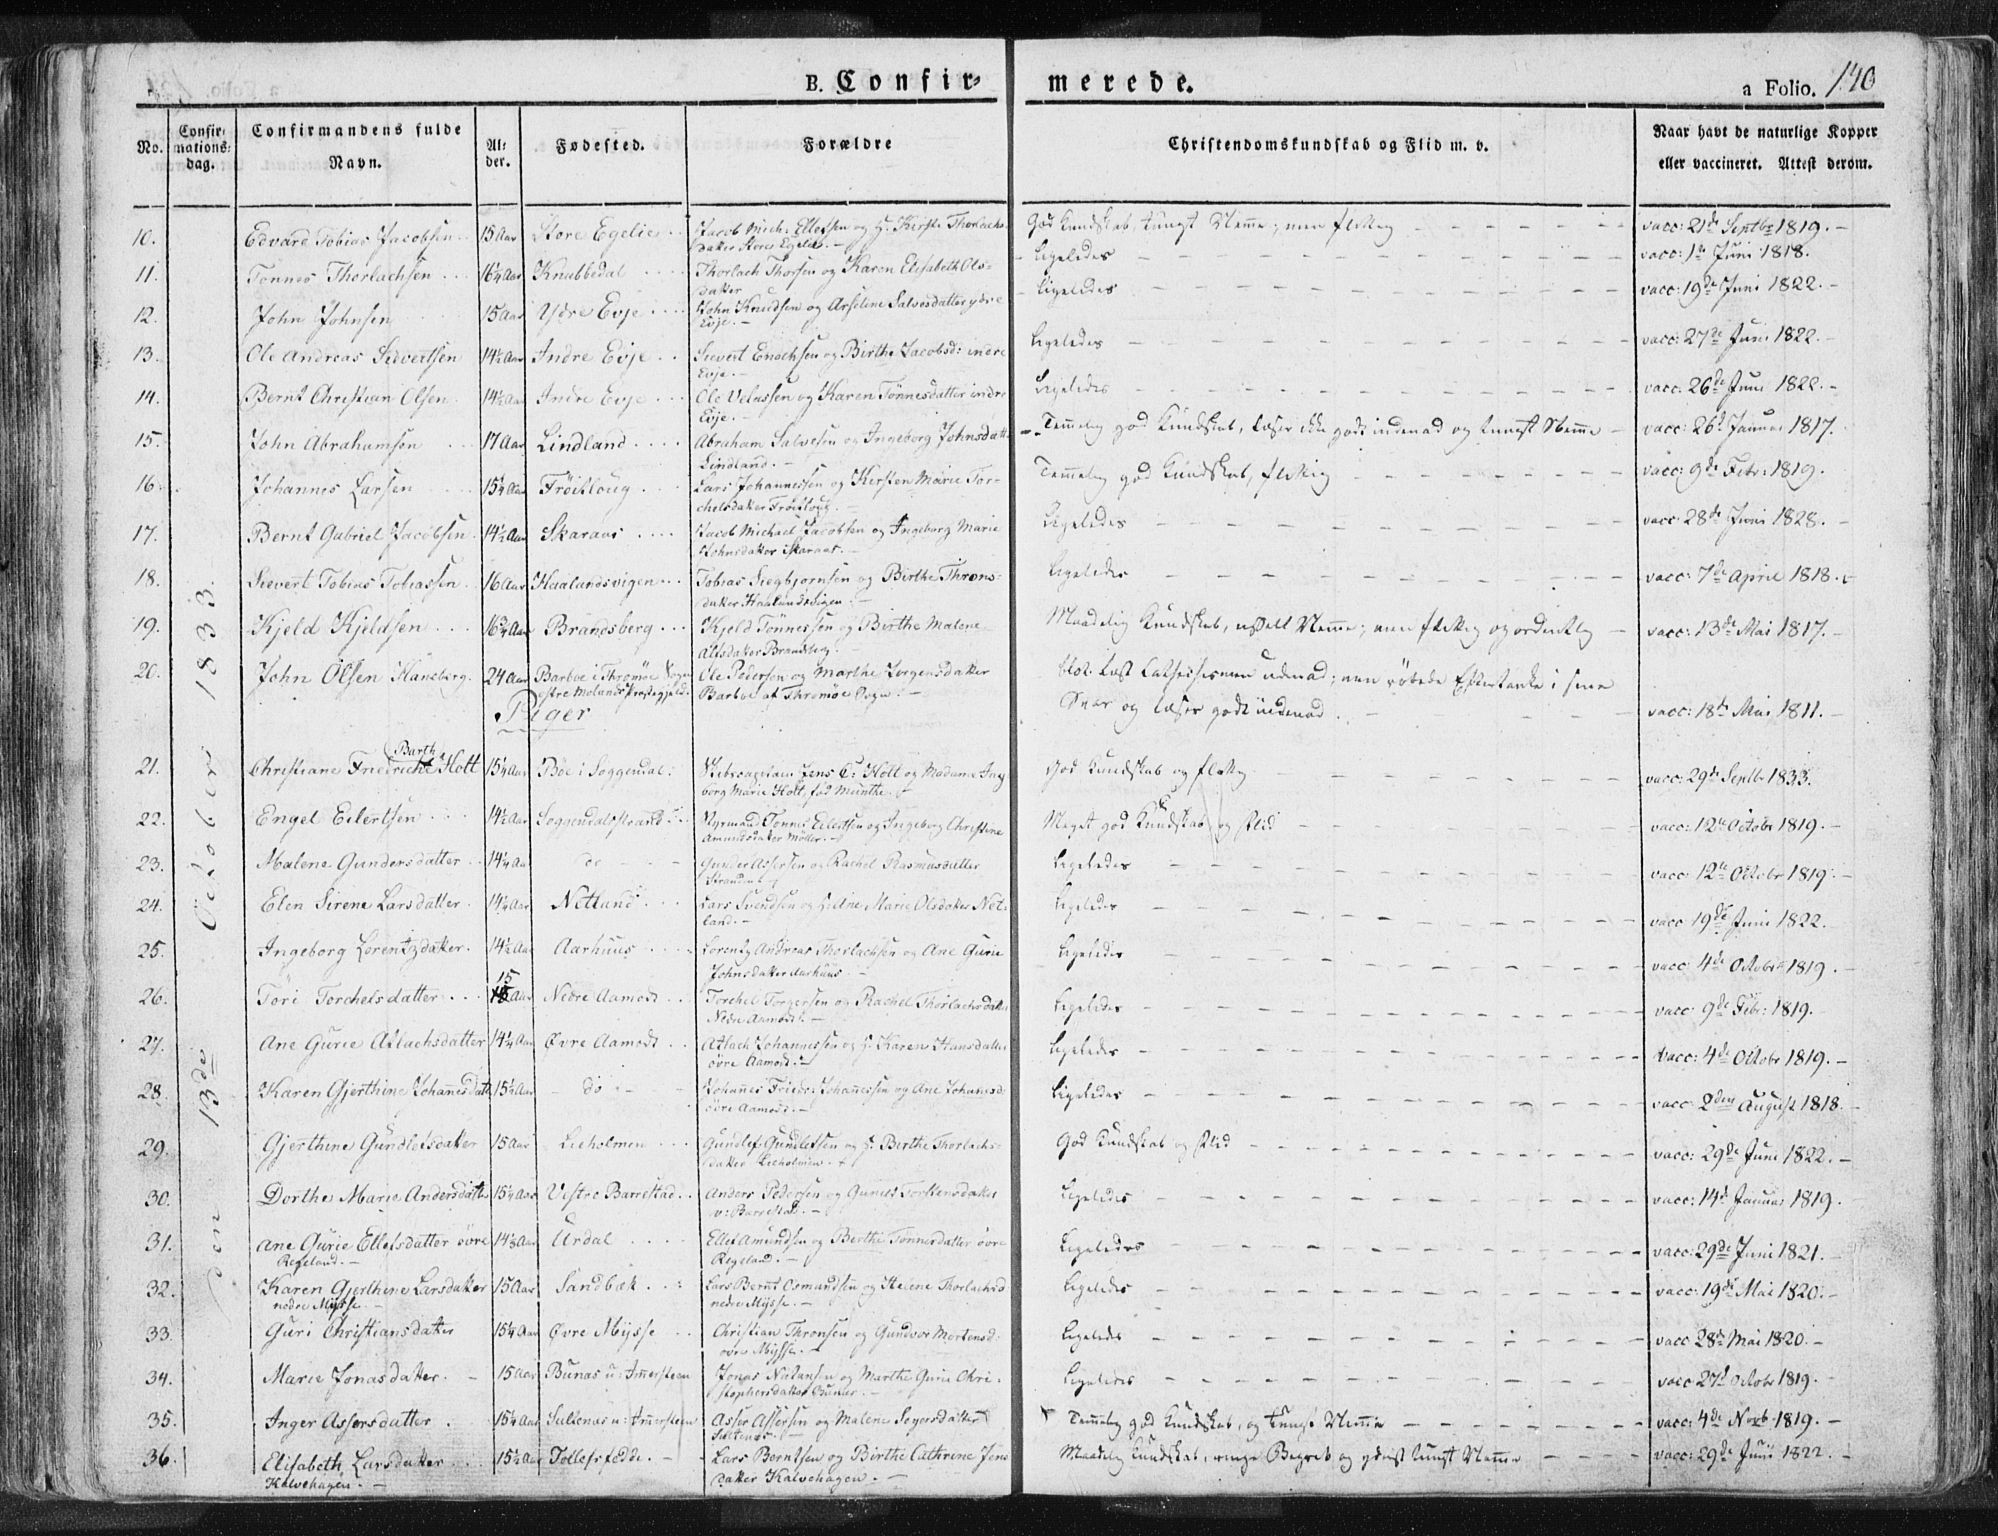 B. Confir-
merede.
a Folio. 140
No.
Confir-
mations-
dag.
Confirmandens fulde
Navn.
Al-
der.
Fødested.
Forældre
Christendomskundskab og Flid m. v.
Naar havt de naturlige Kopper
eller vaccineret. Attest derom.
den 13de October 1833.
10. Edvard Tobias Jacobsen 15 Aar Store Egelie Jacob Mich: Ellefsen og H. Kirste Thorlachs- God Kundskab, tungt Nemme; men flittig vacc: 21de Septbr 1819.
datter Store Egelie.
11. Tønnes Thorlachsen 16¼ Aar Knubbedal Thorlach Thorsen og Karen Elisabeth Ols- Ligeledes vacc: 1te Juni 1818.
datter
12. John Johnsen 15 Aar Ydre Evje John Knudsen og Arseline Salvesdatter ydre Ligeledes vacc: 19de Juni 1822.
Evje.
13. Ole Andreas Sievertsen 14½ Aar Indre Evje Sievert Enochsen og Birthe Jacobsd: indre Ligeledes vacc: 27de Juni 1822.
Evje.
14. Bernt Christian Olsen 14½ Aar Indre Evje Ole Velussen og Karen Tønnesdatter indre Ligeledes vacc: 26de Juni 1822.
Evje.
15. John Abrahamsen 17 Aar Lindland Abraham Salvesen og Ingeborg Johnsdatt: Temmelig god Kundskab, læser ikke godt indenad og tungt Nemme vacc: 26de Januar 1817.
Lindland.
16. Johannes Larsen 15¼ Aar Frøitloug Lars Johannessen og Kirsten Marie Tor- Temmelig god Kundskab, flittig vacc: 9de Febr: 1819.
chelsdatter Frøitloug.
17. Bernt Gabriel Jacobsen 14½ Aar Skaraas Jacob Michael Jacobsen og Ingeborg Marie Ligeledes vacc: 28de Juni 1828.
Johnsdatter Skaraas.
18. Sievert Tobias Tobiassen 16 Aar Haalandsvigen Tobias Siegbjørnsen og Birthe Throns- Ligeledes vacc: 7de April 1818.
datter Haalandsvigen.
19. Kjeld Kjeldsen 16¾ Aar Brandsberg Kjeld Tønnessen og Birthe Malene Maadelig Kundskab, Nemme; men flittig og ordentlig vacc: 13de Mai 1817.
Alfsdatter Brandsberg.
20. John Olsen Haneberg 24 Aar Barboe i Thromøe Sogn Ole Pedersen og Marthe Jørgensdatter blot læst Cathechismen udenad; men røbede Eftertanke i sine
østre Molands Præstegjeld. Barboe af Thromøe Sogn. Svar og læser godt indenad. vacc: 18de Mai 1811.
Piger
Barth
21. Christiane Friedriche Holt 15¼ Aar Bøe i Soggendal: Skibscapitain Jens C: Holt og Madame Inge- God Kundskab og flittig vacc: 29de Septbr 1833.
borg Marie Holt, fød Munthe.
22. Engel Eilertsen 14½ Aar Soggendalsstrand Styrmand Tønnes Eilertsen og Ingeborg Christine Meget god Kundskab og Flid vacc: 12te Octobr 1819.
Amundsdatter Møller.
23. Malene Gundersdatter 14¼ Aar do Gunder Assersen og Rachel Rasmusdatter Ligeledes vacc: 12te Octobr 1819.
Stranden.
24. Elen Sirene Larsdatter 14¼ Aar Netland Lars Svendsen og H. Ane Marie Olsdatter Net- Ligeledes vacc 19de Juni 1822.
land.
25. Ingeborg Lorentzdatter 14½ Aar Aarhuus Lorentz Andreas Thorlachsen og Ane Gurie Ligeledes vacc: 4de Octobr 1819.
Johnsdatter Aarhuus
26. Tøri Torchelsdatter 15 Aar Nedre Aamodt Torchel Torgersen og Rachel Thorlachsdatter Ligeledes vacc: 9de Febr: 1819.
Nedre Aamodt.
27. Ane Gurie Atlachsdatter 14¼ Aar Øvre Aamodt Atlach Johannessen og H. Karen Hansdatter Ligeledes vacc: 4de Octobr 1819.
øvre Aamodt.
28. Karen Gjerthine Johannesdatt: 15¼ Aar do Johannes Frieder: Johannessen og Ane Johannesd: Ligeledes vacc: 2den August 1818.
øvre Aamodt.
29. Gjerthine Gundlefsdatter 15 Aar Lieholmen Gundlef Gundlefsen og H. Birthe Thorlachs- God Kundskab og Flid vacc: 29de Juni 1822.
datter Lieholmen.
30. Dorthe Marie Andersdatter 15¼ Aar Vestre Barrestad Anders Pedersen og Gunild Torkensdatter Ligeledes vacc: 14de Januar 1819.
v: Barrestad.
31. Ane Gurie Ellefsdatter øvre 14½ Aar Urdal Ellef Amundsen og Berthe Tønnesdatter øvre Ligeledes vacc: 29de Juni 1821.
Regeland. Regeland.
32. Karen Gjerthine Larsdatter 15 Aar Sandbæk Lars Bernt Osmundsen og Helene Thorlachsd: Ligeledes vacc: 19de Mai 1820.
nedre Mysse nedre Mysse.
33. Guri Christiansdatter 15¼ Aar Øvre Mysse Christian Thronsen og Gundvor Mortensd: Ligeledes vacc 28de Mai 1820.
øvre Mysse.
34. Marie Jonasdatter 15 Aar Bunæs u: Immersteen Jonas Natansen og Marthe Gurie Chri- Ligeledes vacc 27de Octobr 1819.
stophersdatter Bunæs.
35. Inger Assersdatter 15¼ Aar Saltenæs u: Immersteen Asser Assersen og Malene Sejersdatter Temmelig god Kundskab, og tungt Nemme vacc: 4de Novb 1819.
Saltenæs.
36. Elisabeth Larsdatter 15½ Aar Tollefsfedde Lars Berntsen og Birthe Cathrene Jens- Maadelig Kundskab, ringe Begreb og yderst tungt Nemme vacc: 29de Juni 1822.
Kalvehagen. datter Kalvehagen.